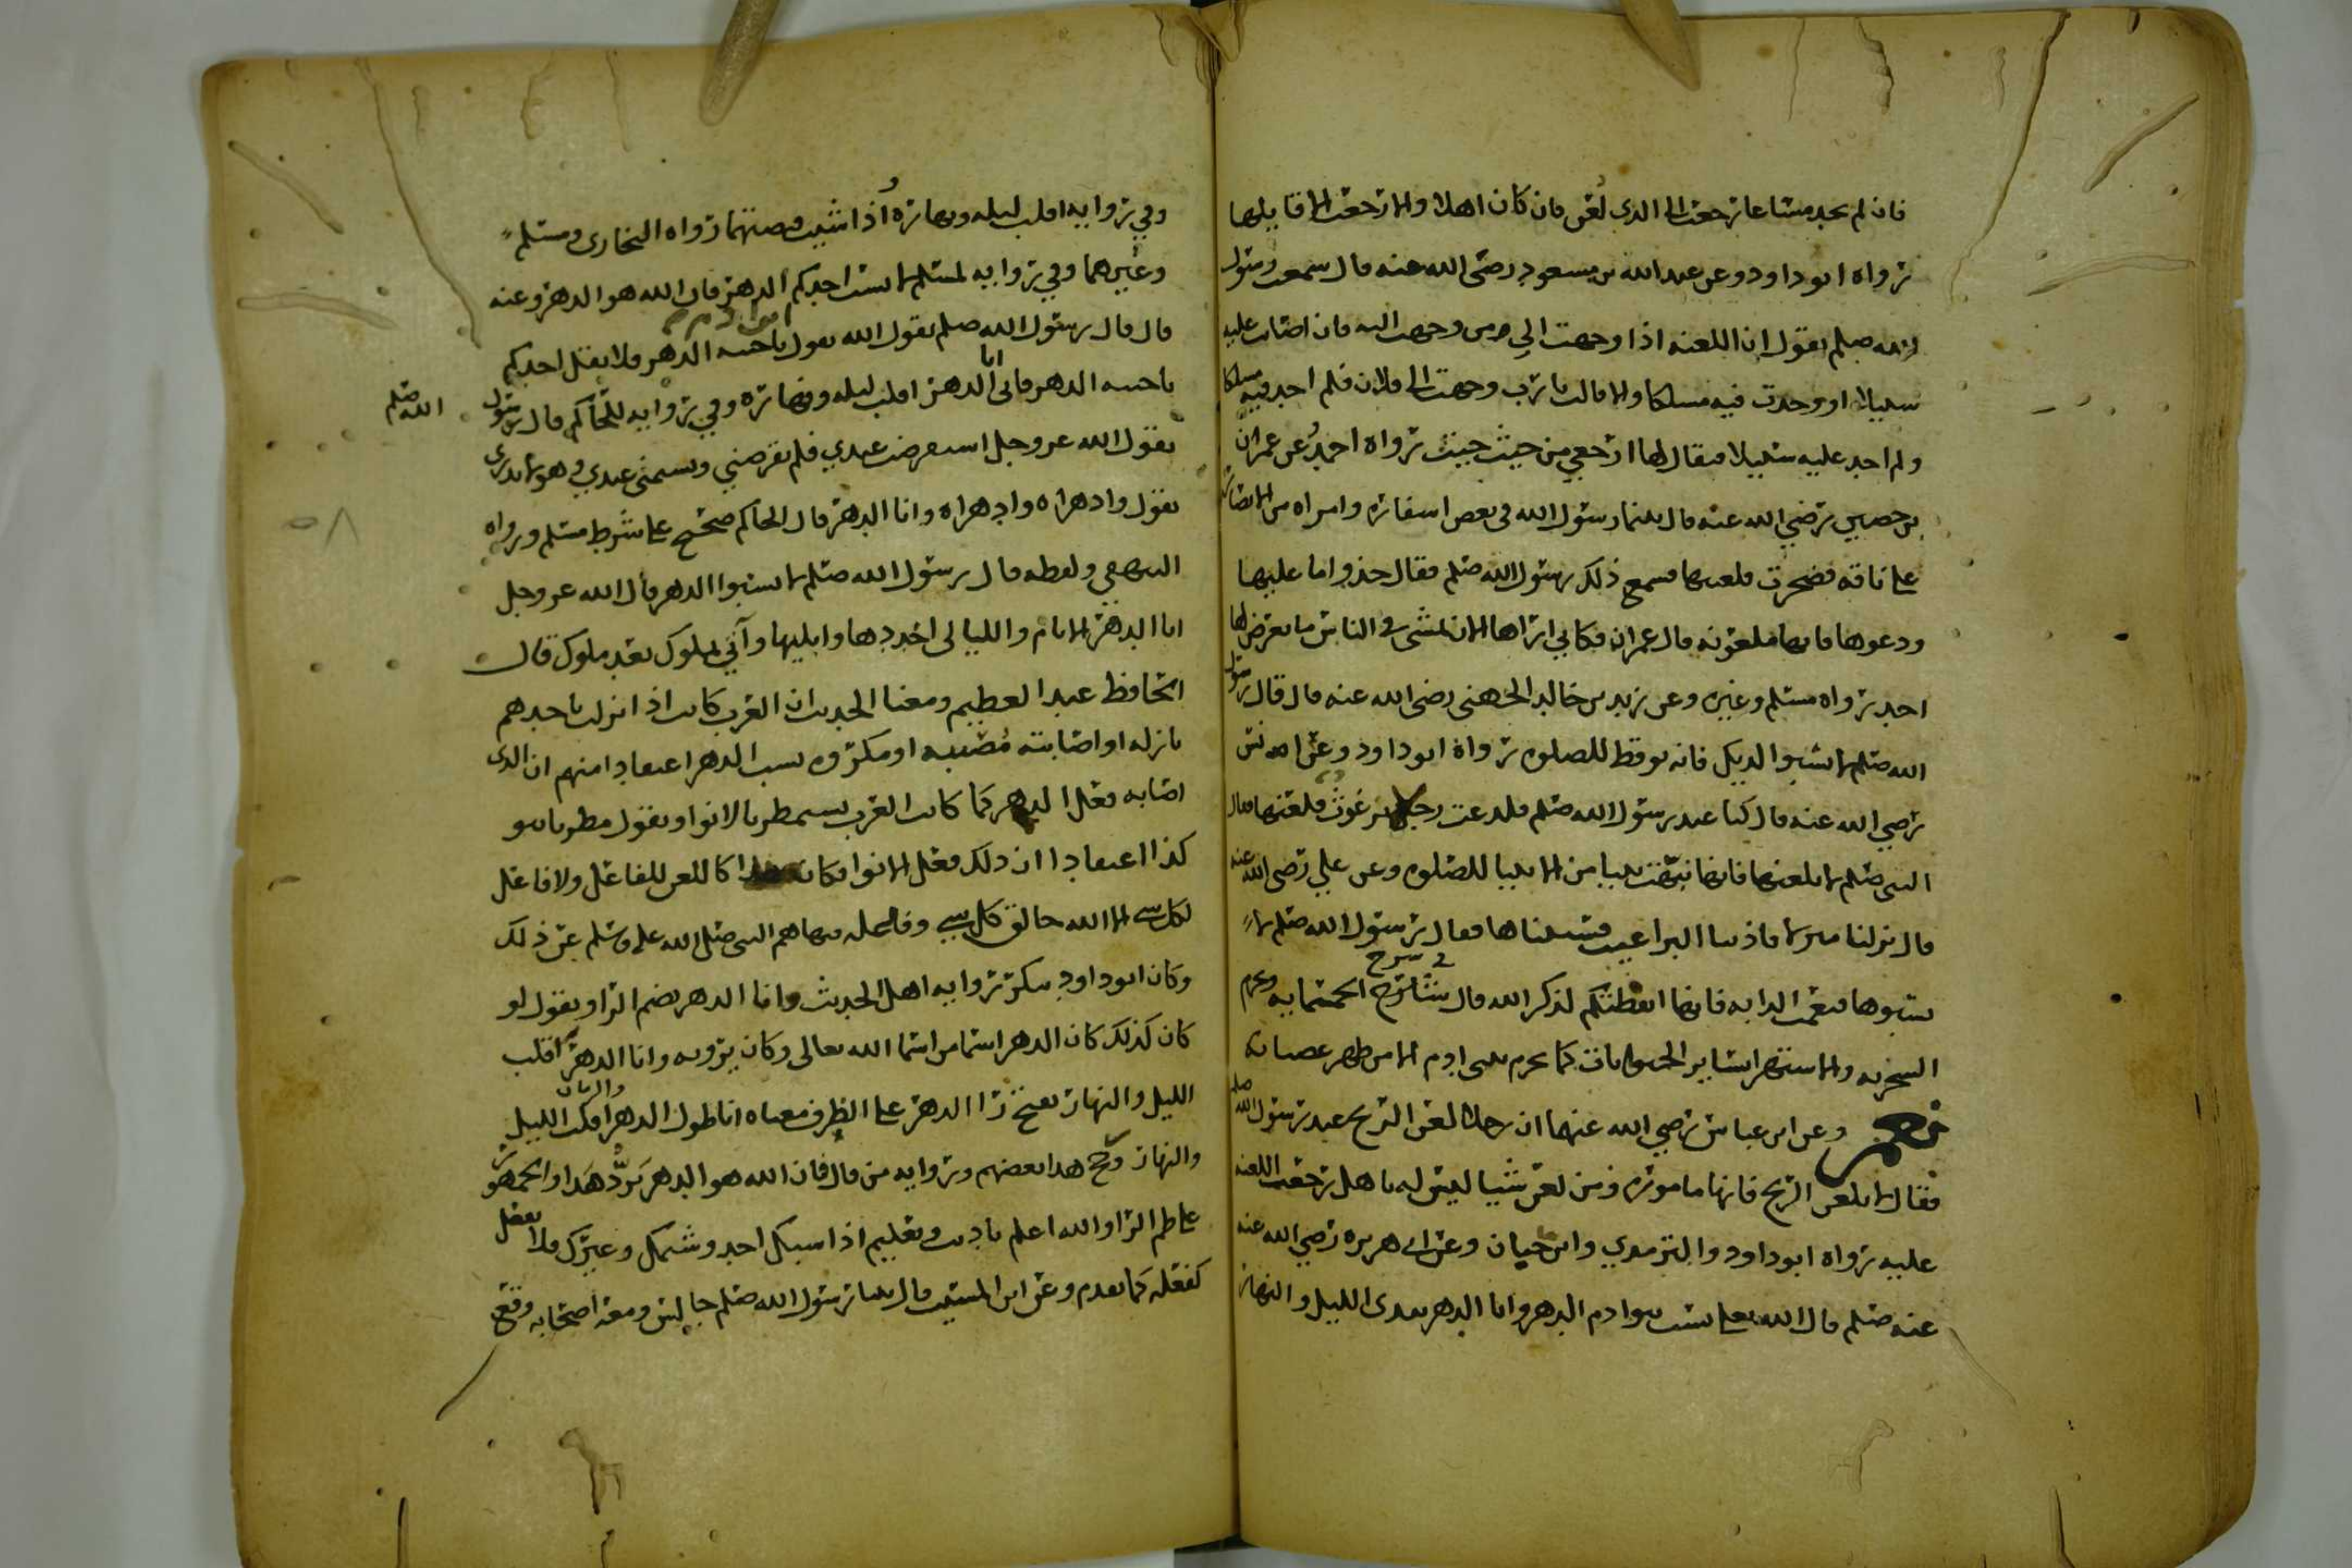 فان لم يجد مساغا رجعت الى الذي لعن فان كان اهلا والا رجعت الى قايلها
رواه ابو داود وعن عبد الله بن مسعود رضى الله عنه قال سمعت رسول
الله صلم يقول ان اللعنه اذا وجهت الى من وجهت اليه فان اصابت عليه
سبيلا او وجدت فيه مسلكا والا قالت يا رب وجهت الى فلان فلم اجد فيه مسلكا
ولم اجد عليه سبيلا فيقال لها ارجعي من حيث جيت رواه احمد وعن عمران
بن حصين رضي الله عنه قال بينما رسول الله في بعض اسفاره وامراه من الانصار
على ناقه فضجرت فلعنتها فسمع ذلك رسول الله صلم فقال خذوا ما عليها
ودعوها فانها ملعونه قال عمران فكاني اراها الان تمشى في الناس ما يعرض لها
احد رواه مسلم وغيره وعن زيد بن خالد الجهني رضى الله عنه قال قال رسول
الله صلم لا تسبوا الديك فانه يوقظ للصلوه رواه ابو داود وعن انس
رضي الله عنه قال كنا عند رسول الله صلم فلدغت رجلا برغوث فلعنها فقال
النبي صلم لا تلعنها فانها نبهت نبيا من الانبيا للصلوه وعن علي رضى الله عنه
قال نزلنا منزلا فاذتنا البراغيث فسببناها فقال رسول الله صلم لا
تسبوها فنعمت الدابه فانها ايقظتكم لذكر الله قال شارح الحمتمايه ويحرم
السخريه والاستهزا بساير الحيوانات كما يحرم ببنى ادم الا من ظهر عصيانه
وعن ابن عباس رضي الله عنهما ان رجلا لعن الريح عند رسول الله صلم
فقال لا تلعن الريح فانها ماموره ومن لعن شيا ليس له باهل رجعت اللعنه
عليه رواه ابو داود والترمذي وابن حبان وعن ابي هريره رضي الله عنه
عنه صلم قال الله تعلى يسب بنوا ادم الدهر وانا الدهر بيدى الليل والنهار
وفي روايه اقلب ليله ونهاره واذا شيت قبضتهما رواه البخارى ومسلم
وغيرهما وفي روايه لمسلم لا يسب احدكم الدهر فان الله هو الدهر وعنه
قال قال رسول الله صلم يقول الله يقول يا خيبه الدهر فلا يقل احدكم
يا خيبه الدهر فاني انا الدهر اقلب ليله ونهاره وفي روايه للحاكم قال رسول الله صلم
يقول الله عز وجل استقرضت عبدي فلم يقرضني ويشتمنى عبدي وهو لا يدري
يقول وادهراه وادهراه وانا الدهر قال الحاكم صحيح على شرط مسلم ورواه
البيهقي ولفظه قال رسول الله صلم لا تسبوا الدهر قال الله عز وجل
انا الدهر الايام والليالى اجددها وابليها وآتي بملوك بعد ملوك قال
الحافظ عبد العظيم ومعنا الحديث ان العرب كانت اذا نزلت باحدهم
نازله او اصابته مصيبه او مكروه يسب الدهر اعتقادا منهم ان الذى
اصابه فعل الدهر كما كانت العرب تستمطر بالانوا ويقول مطرنا بنو
كذا اعتقادا ان ذلك فعل الانوا فكان هذا كاللعن للفاعل ولا فاعل
لكل شى الا الله خالق كل شى وفاعله فنهاهم النبي صلى الله عليه وسلم عن ذلك
وكان ابو داود ينكر روايه اهل الحديث وانا الدهر بضم الرا ويقول لو
كان كذلك كان الدهر اسما من اسما الله تعالى وكان يرويه وانا الدهر اقلب
الليل والنهار بفتح را الدهر على الظرف معناه انا طول الدهر والزمان اقلب الليل
والنهار ورجح هذا بعضهم وروايه من قال فان الله هو الدهر يرد هذا والجمهور
على ضم الرا والله اعلم تاديب وتعليم اذا سبك احد وشتمك وعيرك فلا تفعل
كفعله كما تقدم وعن ابن المسيب قال بينا رسول الله صلم جالس ومعه اصحابه وقع